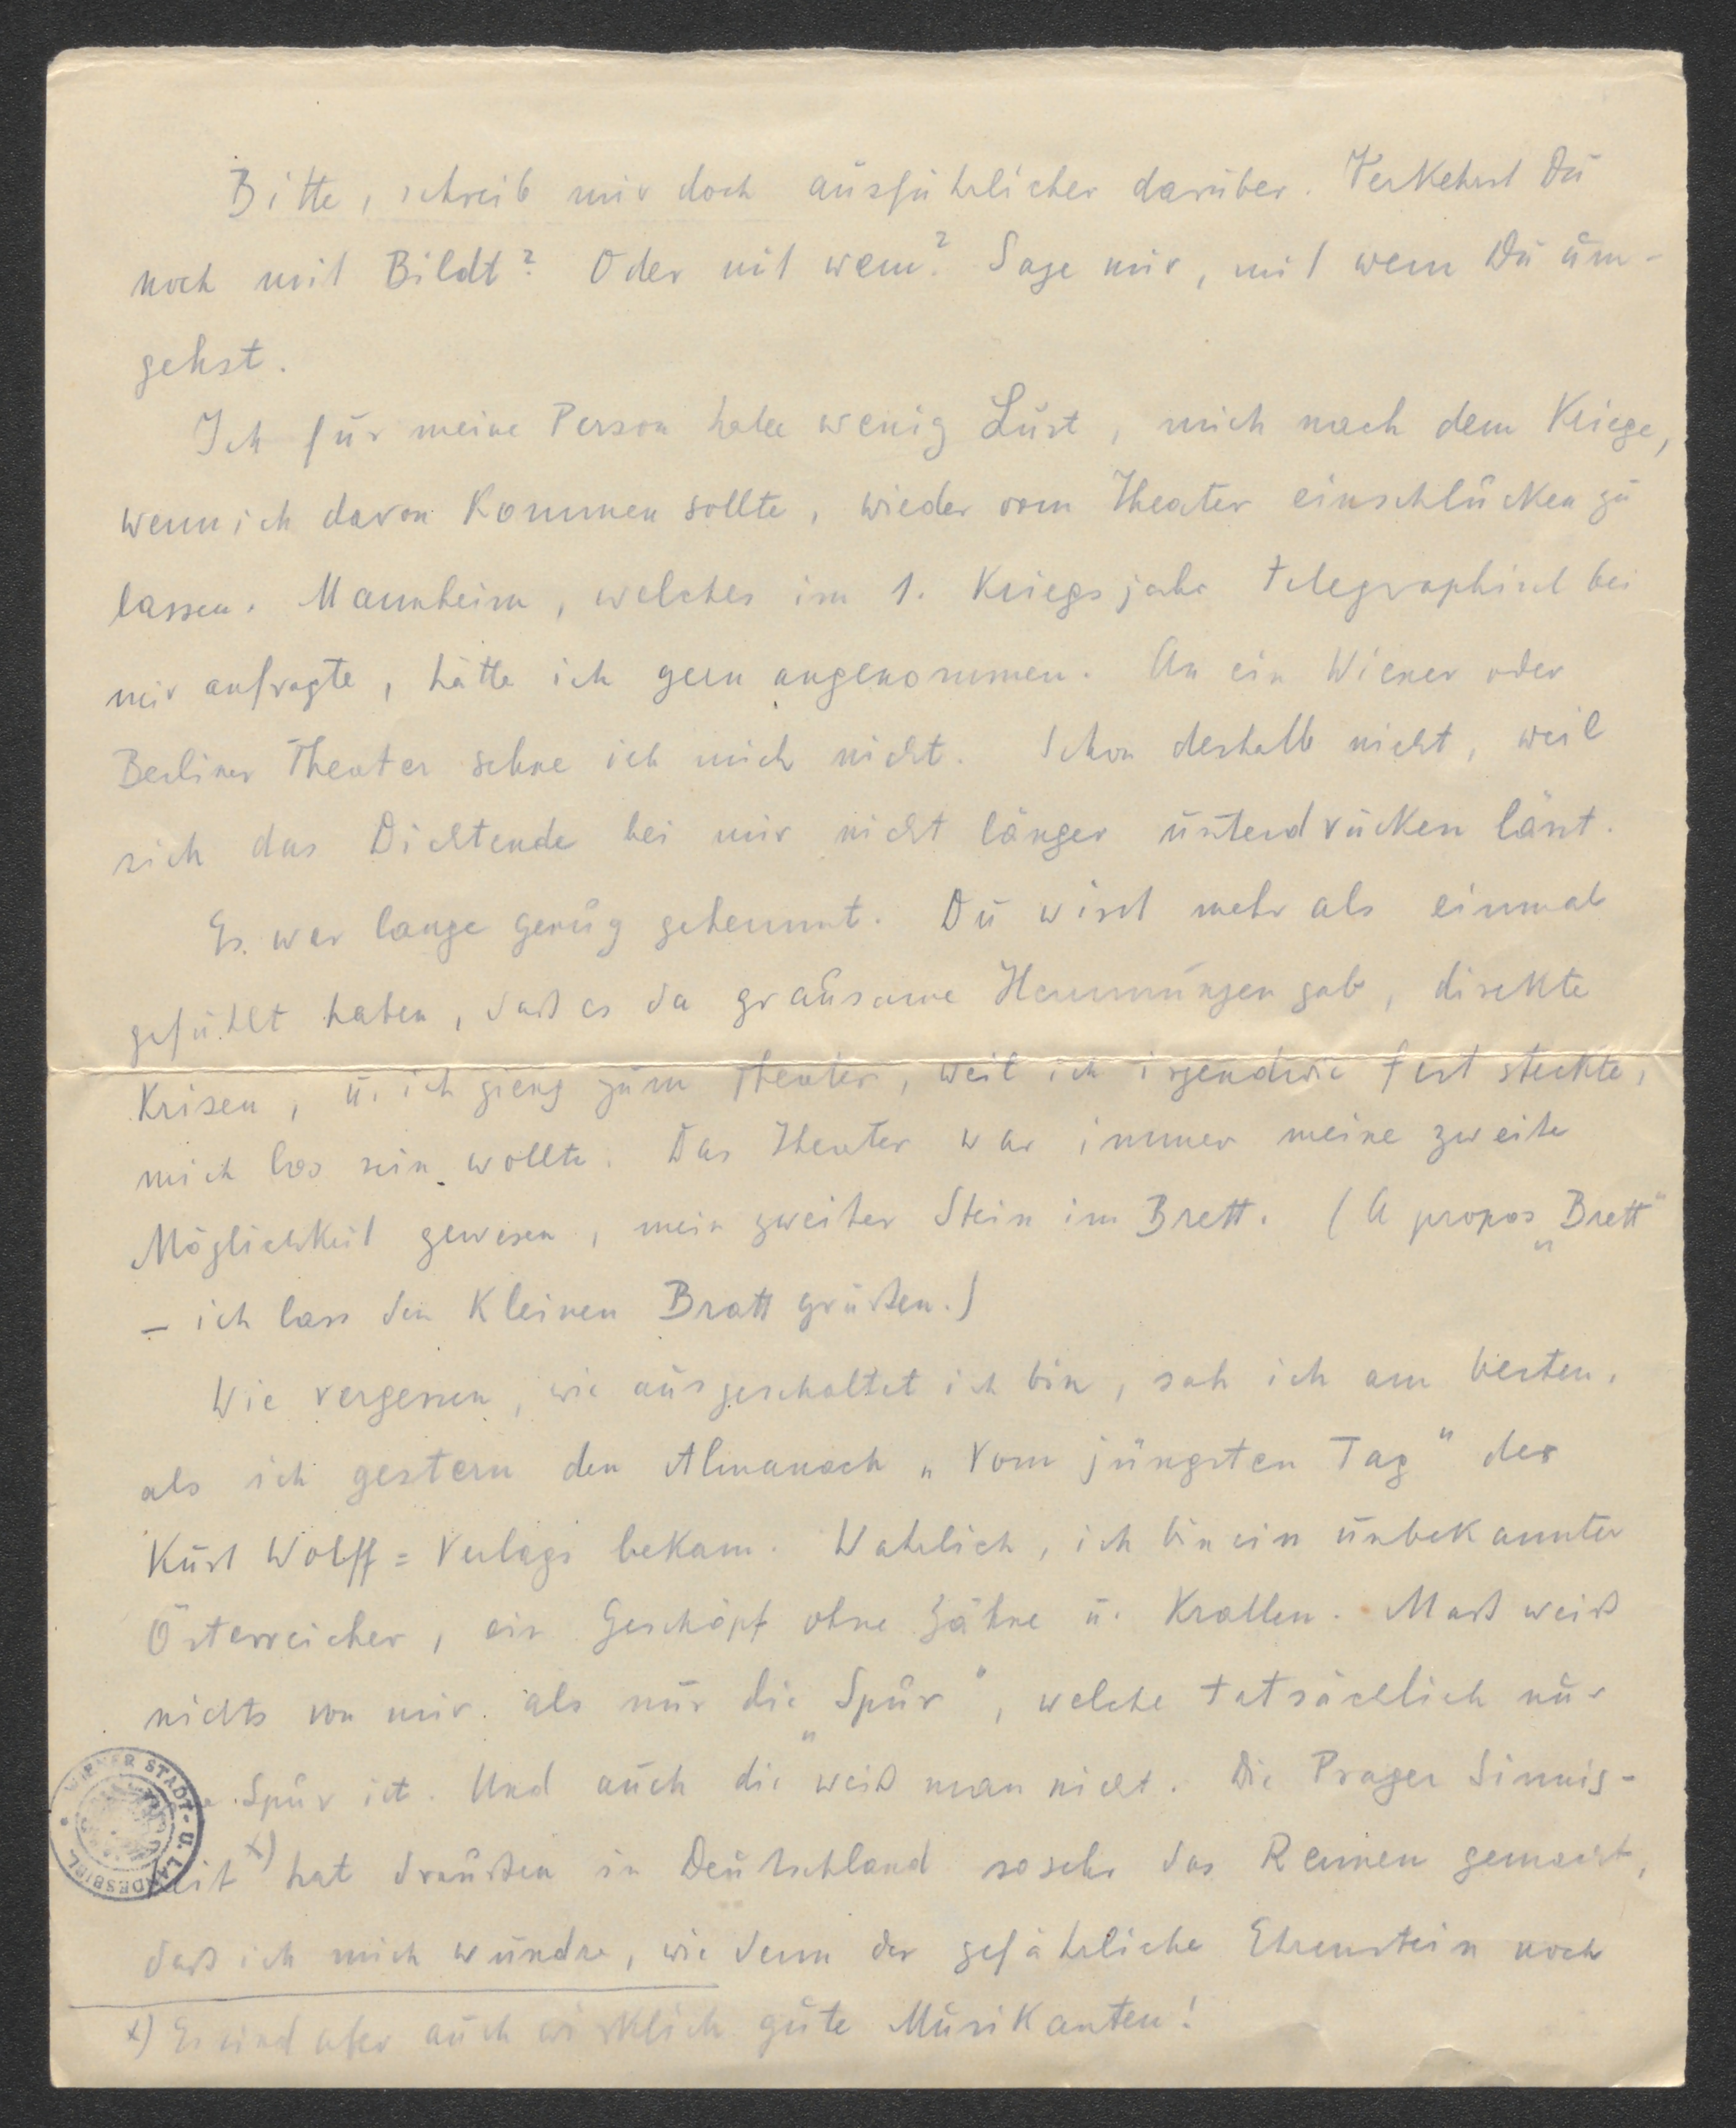 Bitte, schreib mir doch ausführlicher darüber. Verkehrst Du
noch mit Bildt? Oder mit wem? Sage mir, mit wem Du um-
gehst.
Ich für meine Person habe wenig Lust, mich nach dem Kriege,
wenn ich davon kommen sollte, wieder vom Theater einschlucken zu
lassen. Mannheim, welches im 1. Kriegsjahr telegraphisch bei
mir anfragte, hätte ich gern angenommen. An ein Wiener oder
Berliner Theater sehne ich mich nicht. Schon deshalb nicht, weil
sich das Dichtende bei mir nicht länger unterdrücken lässt.
Es war lange genug gehemmt. Du wirst mehr als einmal
gefühlt haben, daß es da grausame Hemmungen gab, direkte
Krisen, u. ich gieng zum Theater, weil ich irgendwie fest steckte,
mich los sein wollte. Das Theater war immer meine zweite
Möglichkeit gewesen, mein zweiter Stein im Brett. (A propos „Brett"
– ich lass den Kleinen Bratt grüßen.)
Wie vergessen, wie ausgeschaltet ich bin, sah ich am besten,
als ich gestern den Almanach „Vom jüngsten Tag" des
Kurt Wolff=Verlags bekam. Wahrlich, ich bin ein unbekannter
Österreicher, ein Geschöpf ohne Zähne u. Krallen. Man weiß
nichts von mir als nur die „Spur", welche tatsächlich nur
Spur ist. Und auch die weiß man nicht. Die Prager Sinnig-
keit x) hat draußen in Deutschland so sehr das Rennen gemacht,
daß ich mich wundre, wie denn der gefährliche Ehrenstein noch
x) Es sind aber auch wirklich gute Musikanten!
WIENER STADT- U. LANDESBIBL.